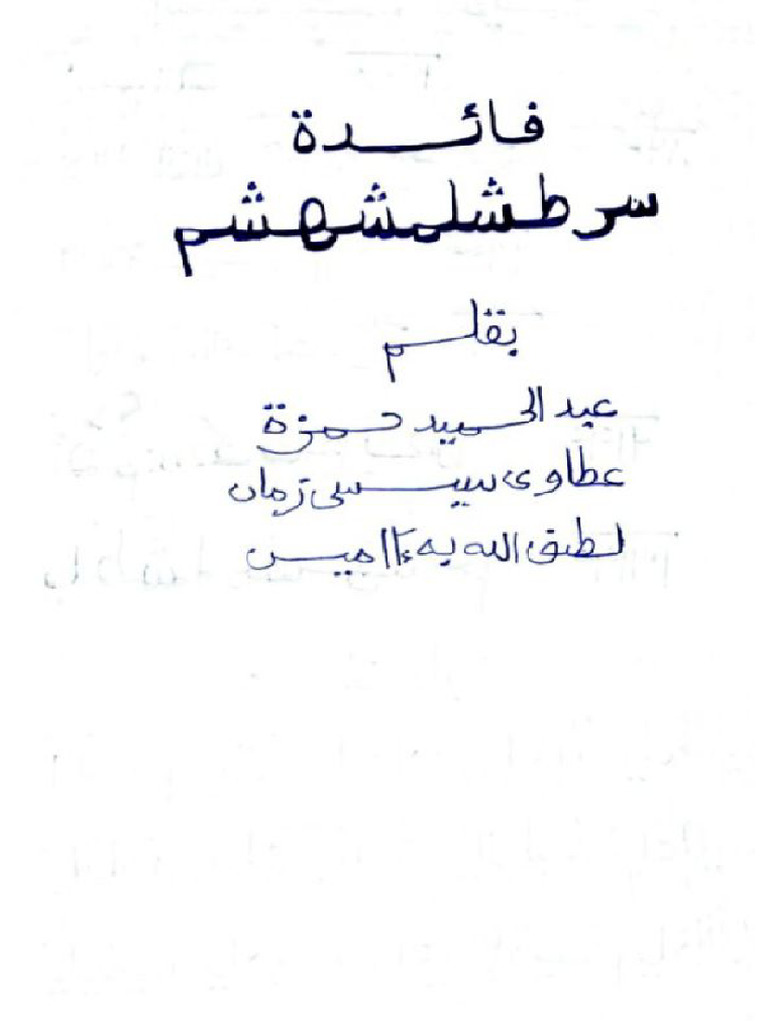 فائدة
سر طشلمشهشم
بقلم
عبد الحميد حمزة
عطاوى سيسى زمان
لطف الله به ءاميس